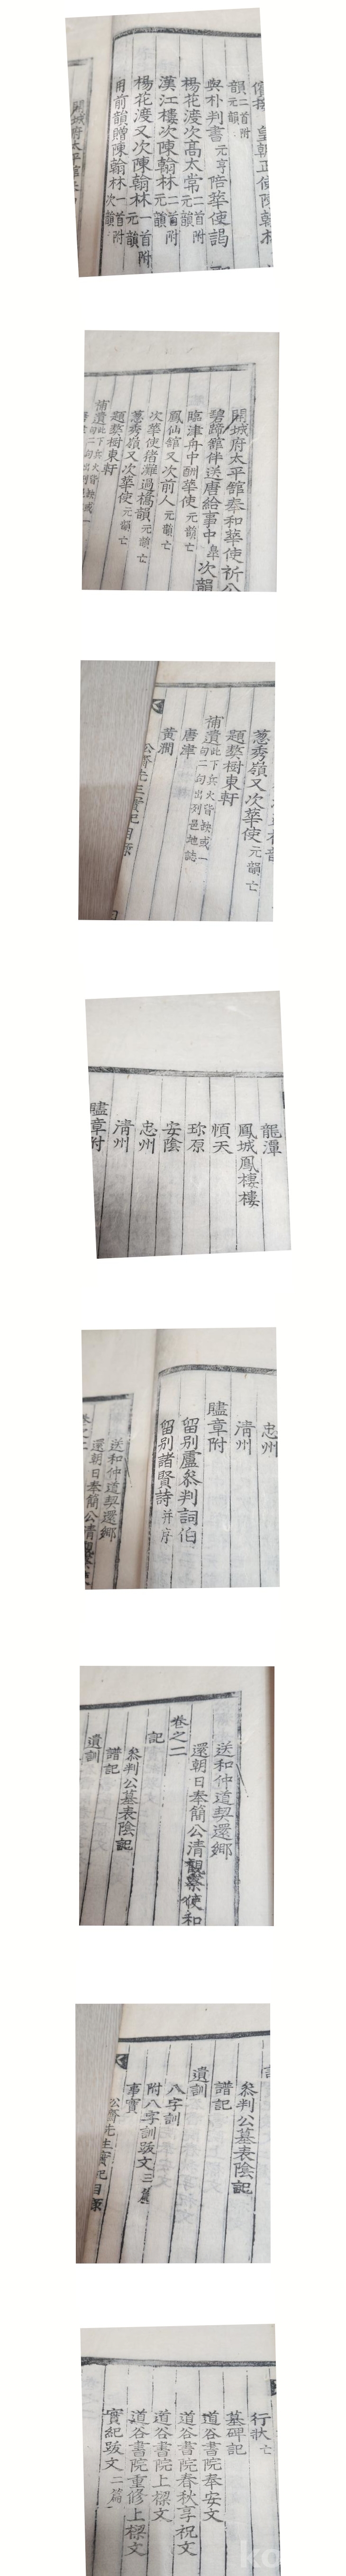 儐接皇朝正使陳翰林
韻二首附元韻
與朴判書元亨陪華使謁
楊花渡次高太常二首附元韻
漢江樓次陳翰林二首附元韻
楊花渡又次陳翰林一首附元韻
用前韻贈陳翰林一首附次韻
開城府太平館
開城府太平館奉和華使祈
碧蹄館伴送唐給事中皐次韻
臨津舟中酬華使元韻亡
鳳仙館又次前人元韻亡
次華使猪灘過橋韻元韻亡
葱秀嶺又次華使元韻亡
題蔡樹東軒
補遺此下兵火皆缺或一句二句出列
葱秀嶺又次華使元韻亡
題蔡樹東軒
補遺此下兵火皆缺或一句二句出列邑地誌
唐津
黃澗
公齋先生實紀目錄
龍潭
鳳城鳳樓樓
順天
珍原
安陰
忠州
清州
贐章附
忠州
清州
贐章附
留別盧叅判詞伯
留別諸賢詩并序
送和仲道契還鄉
還朝日奉簡公清觀
送和仲道契還鄉
還朝日奉簡公清觀察使和
卷之二
記
叅判公墓表陰記
譜記
遺訓
叅判公墓表陰記
譜記
遺訓
八字訓
附八字訓跋文三篇
事實
公齋先生實紀目錄
行狀亡
墓碑記
道谷書院奉安文
道谷書院春秋享祝文
道谷書院上樑文
道谷書院重修上樑文
實紀跋文二篇